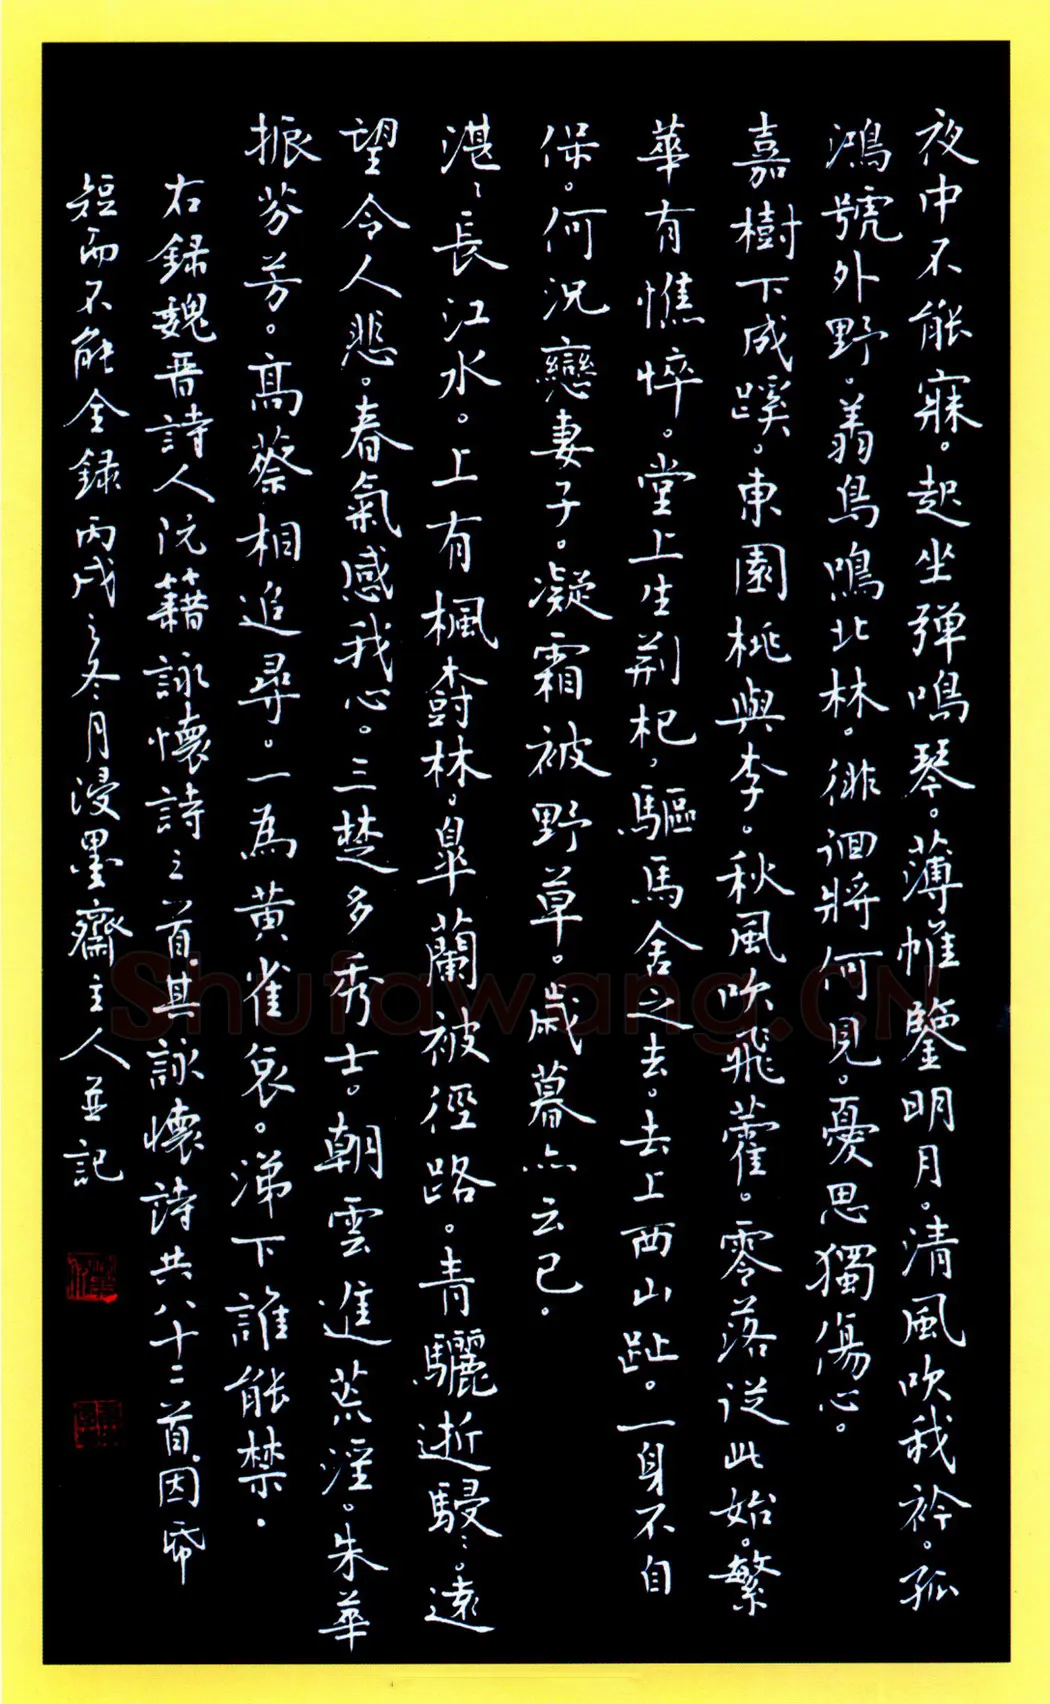 夜中不能寐。起坐弹鳴琴。薄帷鑒明月。清風吹我衿。孤
鴻號外野。翡鳥鳴北林。徘徊將何見。憂思獨傷心。
嘉樹下成蹊。東園桃與李。秋風吹飛藿。零落從此始。繁
華有憔悴。堂上生荆杞。驅馬舍之去。去上西山趾。一身不自
保。何況戀妻子。凝霜被野草。歲暮亦云已。
湛湛長江水。上有楓樹林。皐蘭被徑路。青驪逝駸駸。遠
望令人悲。春氣感我心。三楚多秀士。朝雲進荒淫。朱華
振芬芳。高蔡相追尋。一為黄雀哀。涕下誰能禁。
右録魏晋詩人阮籍詠懷詩之首。其詠懷詩共八十二首。因帋
短而不能全録丙戌之冬月浸墨齋主人並記
Shufawang.CN